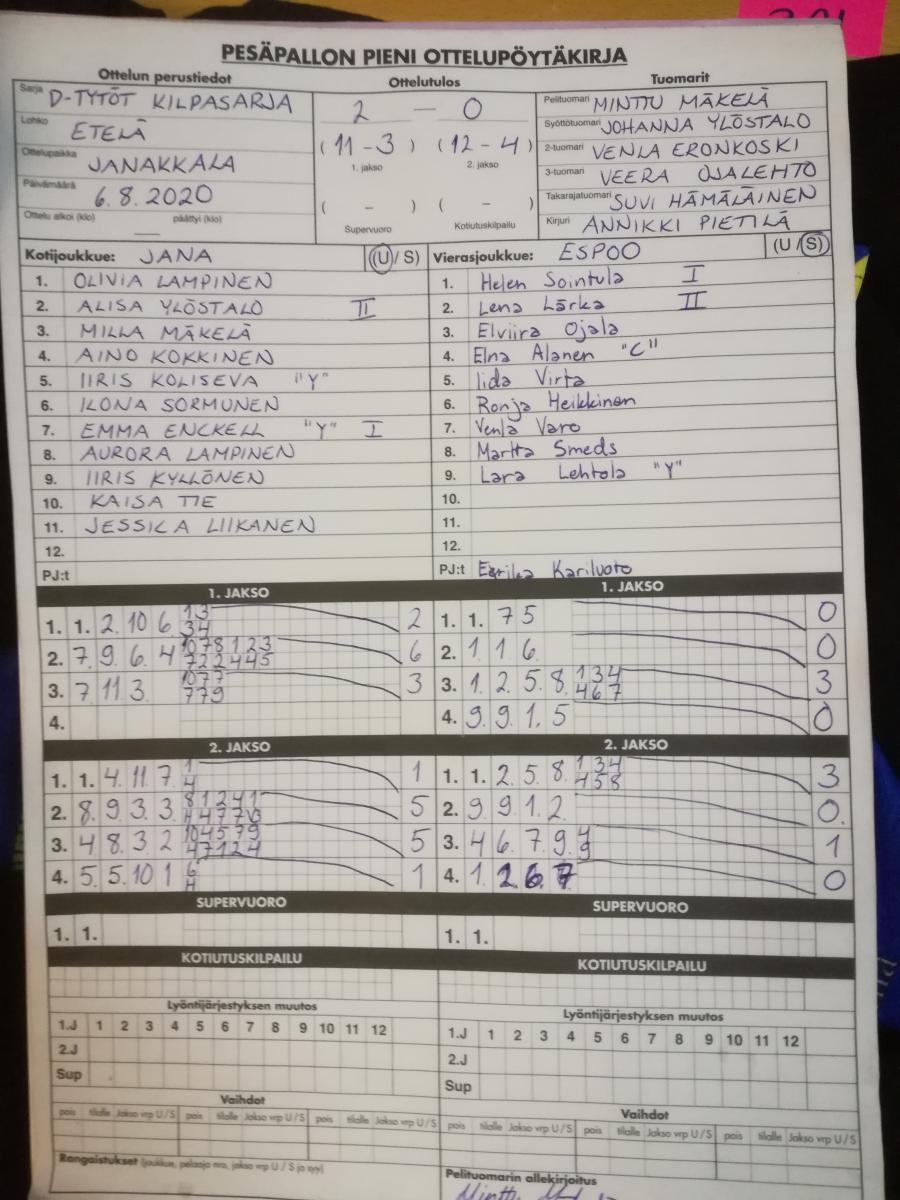 PESÄPALLON PIENI OTTELUPÖYTÄKIRJA
Ottelun perustiedot Ottelutulos Tuomarit
Sarja D-TYTÖT KILPASARJA
Lohko ETELÄ
Ottelupaikka JANAKKALA
Päivämäärä 6.8.2020
Ottelu alkoi (klo) päättyi (klo)
2 — 0
(11-3) (12-4)
1. jakso 2. jakso
( - ) ( - )
Supervuoro Kotiutuskilpailu
Pelituomari MINTTU MÄKELÄ
Syöttötuomari JOHANNA YLÖSTALO
2-tuomari VENLA ERONKOSKI
3-tuomari VEERA OJALEHTO
Takarajatuomari SUVI HÄMÄLÄINEN
Kirjuri ANNIKKI PIETILÄ
Kotijoukkue: JANA (U/S)
1. OLIVIA LAMPINEN
2. ALISA YLÖSTALO II
3. MILLA MÄKELÄ
4. AINO KOKKINEN
5. IIRIS KOLISEVA "Y"
6. ILONA SORMUNEN
7. EMMA ENCKELL "Y" I
8. AURORA LAMPINEN
9. IIRIS KYLLÖNEN
10. KAISA TIE
11. JESSICA LIIKANEN
12.
PJ:t
Vierasjoukkue: ESPOO (U/S)
1. Helen Sointula I
2. Lena Lärka II
3. Elviira Ojala
4. Elna Alanen "C"
5. Iida Virta
6. Ronja Heikkinen
7. Venla Varo
8. Martta Smeds
9. Lara Lehtola "Y"
10.
11.
12.
PJ:t Kariluoto
1. JAKSO
1. 1. 2 10 6 13 2
34
2. 7 9 6 4 1078123 6
722445
3. 7 11 3 1077 3
779
4.
1. JAKSO
1. 1. 7 5 0
2. 1 1 6. 0
3. 1 2 5 8 134 3
467
4. 9 9 1 5 0
2. JAKSO
1. 1. 4 11 7 1 1
4
2. 8 9 3 3 81241 5
3. 4 8 3 2 104579 5
47124
4. 5 5 10 1 6 1
4
2. JAKSO
1. 1. 2 5 8 134 3
458
2. 9 9 1 2 0.
3. 4 6 7 9 4 1
9
4. 1 2 6 7 0
SUPERVUORO
1. 1.
SUPERVUORO
1. 1.
KOTIUTUSKILPAILU
KOTIUTUSKILPAILU
Lyöntijärjestyksen muutos
1.J 1 2 3 4 5 6 7 8 9 10 11 12
2.J
Sup
Lyöntijärjestyksen muutos
1.J 1 2 3 4 5 6 7 8 9 10 11 12
2.J
Sup
Vaihdot
pois tilalle Jakso vrp U/S pois tilalle Jakso vrp U/S pois tilalle Jakso vrp U/S
Vaihdot
pois tilalle Jakso vrp U/S pois tilalle Jakso vrp U/S pois tilalle Jakso vrp U/S
Rangaistukset (joukkue, pelaaja nro, jakso vrp U / S ja syy)
Pelituomarin allekirjoitus